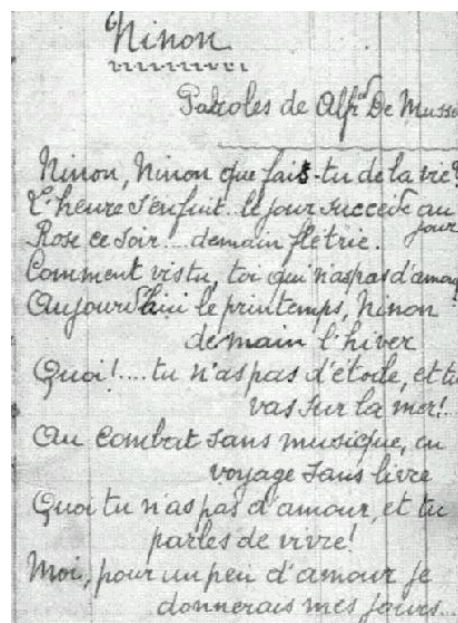 Ninon
Paroles de Alfred De Musse
Ninon, Ninon que fais-tu de la vie?
L'heure s'enfuit.. le jour succède au
jour
Rose ce soir.... demain flétrie.
Comment vis tu, toi qui n'as pas d'amou
Aujourd'hui le printemps, Ninon
demain l'hiver
Quoi!.... tu n'as pas d'étoile, et tu
vas sur la mer!..
Au combat sans musique, en
voyage sans livre
Quoi tu n'as pas d'amour, et tu
parles de vivre!
Moi, pour un peu d'amour je
donnerais mes jours...